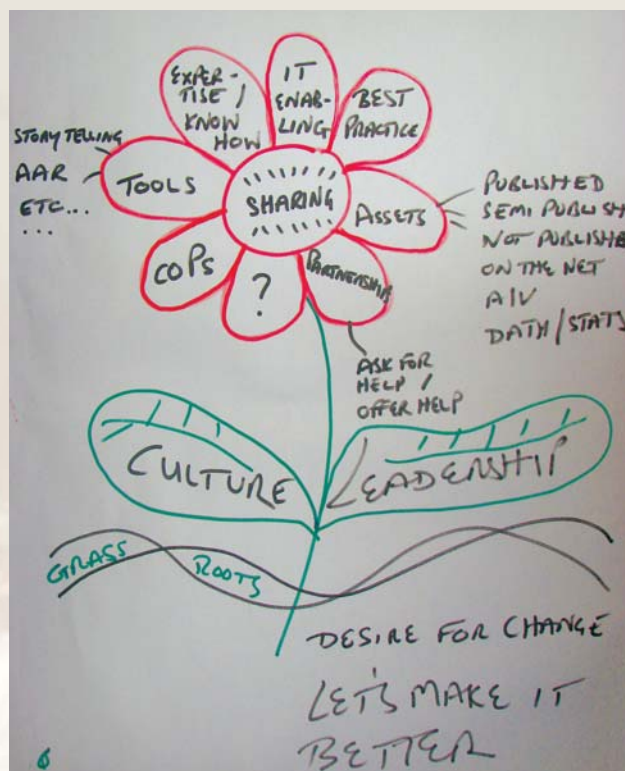 EXPER-
TISE /
KNOW
HOW
IT
ENAB-
LING
BEST
PRACTICE
STORY TELLING
AAR
ETC...
...
TOOLS
SHARING
ASSETS
PUBLISHED
SEMI PUBLISH
NOT PUBLISHE
ON THE NET
A/V
DATA/STATS
COPS
?
PARTNERSHIP
ASK FOR
HELP /
OFFER HELP
CULTURE
LEADERSHIP
GRASS
ROOTS
DESIRE FOR CHANGE
LET'S MAKE IT
BETTER
6